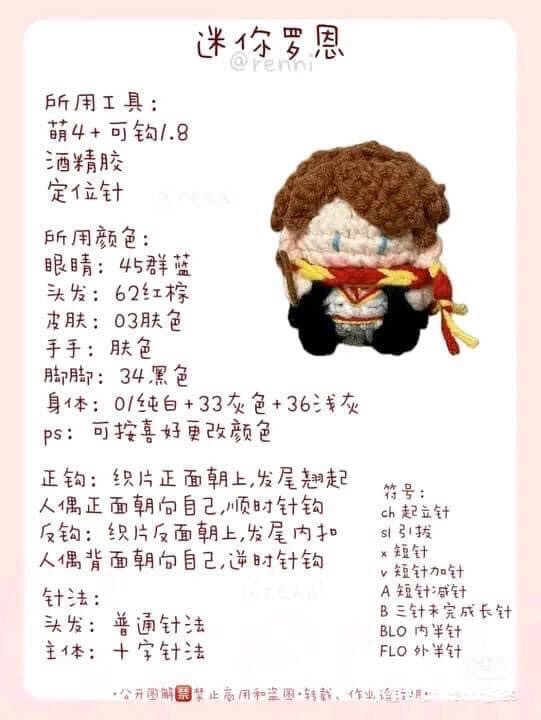 迷你罗恩
@renni
所用工具：
萌4+可钩1.8
酒精胶
定位针
所用颜色：
眼睛：45群蓝
头发：62红棕
皮肤：03肤色
手手：肤色
脚脚：34黑色
身体：01纯白+33灰色+36浅灰
ps：可按喜好更改颜色
正钩：织片正面朝上,发尾翘起
人偶正面朝向自己,顺时针钩
反钩：织片反面朝上,发尾内扣
人偶背面朝向自己,逆时针钩
@renni
针法：
头发：普通针法
主体：十字针法
符号：
ch 起立针
sl 引拔
x 短针
v 短针加针
A 短针减针
B 三针未完成长针
BLO 内半针
FLO 外半针
·公开图解🈲禁止商用和盗图·转载、作业请注明·